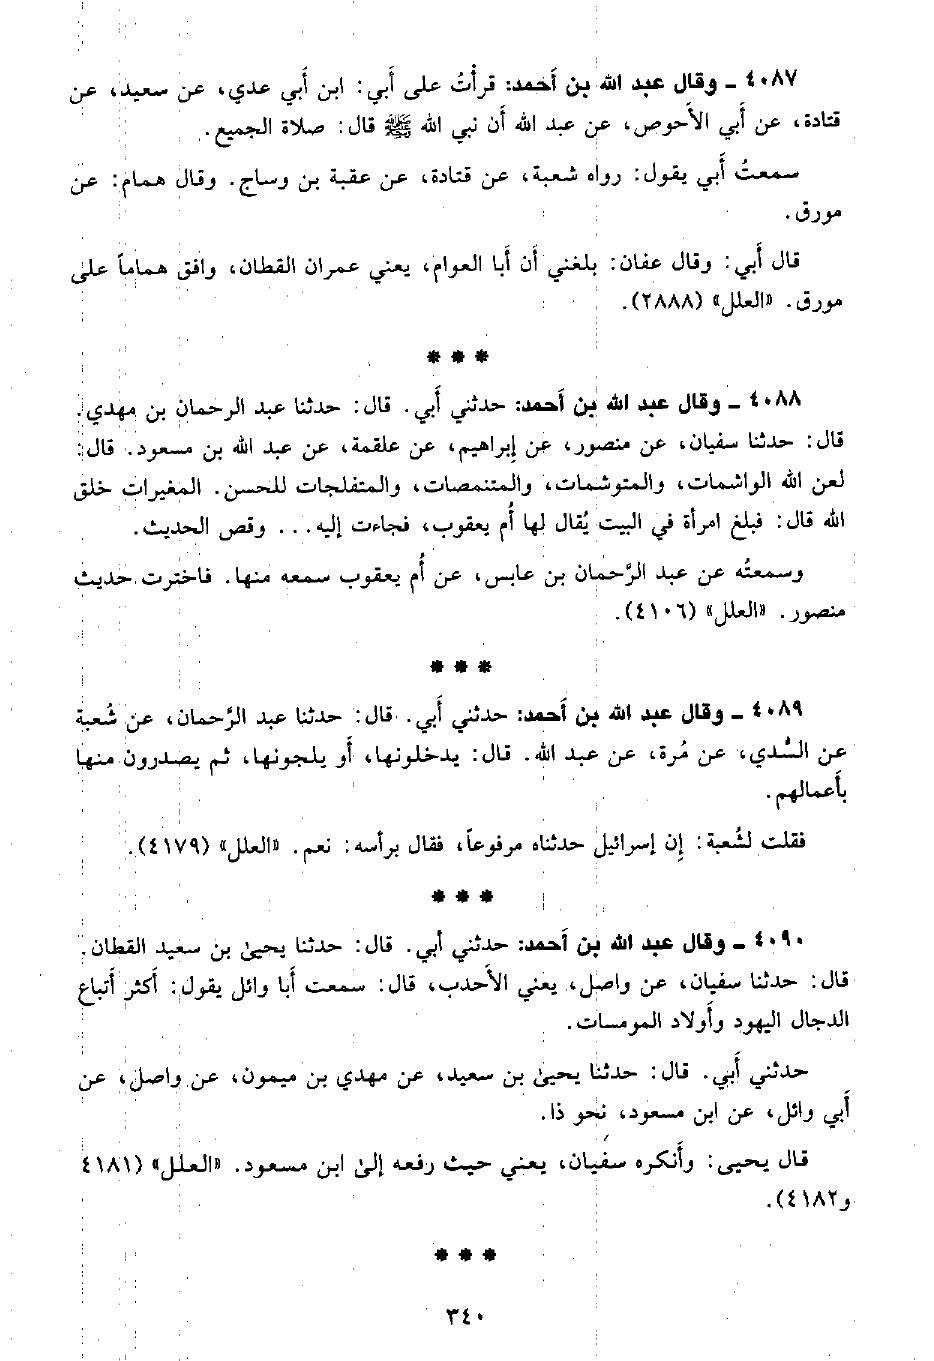 ٤٠٨٧ ـ وقال عبد الله بن أحمد: قرأتُ على أبي: ابن أبي عدي، عن سعيد، عن
قتادة، عن أبي الأحوص، عن عبد الله أن نبي الله ﷺ قال: صلاة الجميع.
سمعتُ أبي يقول: رواه شعبة، عن قتادة، عن عقبة بن وساج. وقال همام: عن
مورق.
قال أبي: وقال عفان: بلغني أن أبا العوام، يعني عمران القطان، وافق هماماً على
مورق. «العلل» (٢٨٨٨).
* * *
٤٠٨٨ ـ وقال عبد الله بن أحمد: حدثني أبي. قال: حدثنا عبد الرحمان بن مهدي.
قال: حدثنا سفيان، عن منصور، عن إبراهيم، عن علقمة، عن عبد الله بن مسعود. قال:
لعن الله الواشمات، والمتوشمات، والمتنمصات، والمتفلجات للحسن. المغيرات خلق
الله قال: فبلغ امرأة في البيت يُقال لها أُم يعقوب، فجاءت إليه... وقص الحديث.
وسمعتُه عن عبد الرَّحمان بن عابس، عن أُم يعقوب سمعه منها. فاخترت حديث
منصور. «العلل» (٤١٠٦).
* * *
٤٠٨٩ ـ وقال عبد الله بن أحمد: حدثني أبي. قال: حدثنا عبد الرَّحمان، عن شُعبة
عن السُّدي، عن مُرة، عن عبد الله. قال: يدخلونها، أو يلجونها، ثم يصدرون منها
بأعمالهم.
فقلت لشُعبة: إن إسرائيل حدثناه مرفوعاً، فقال برأسه: نعم. «العلل» (٤١٧٩).
* * *
٤٠٩٠ ـ وقال عبد الله بن أحمد: حدثني أبي. قال: حدثنا يحيىٰ بن سعيد القطان.
قال: حدثنا سفيان، عن واصل، يعني الأحدب، قال: سمعت أبا وائل يقول: أكثر أتباع
الدجال اليهود وأولاد المومسات.
حدثني أبي. قال: حدثنا يحيىٰ بن سعيد، عن مهدي بن ميمون، عن واصل، عن
أبي وائل، عن ابن مسعود، نحو ذا.
قال يحيى: وأنكره سفيان، يعني حيث رفعه إلىٰ ابن مسعود. «العلل» (٤١٨١
و٤١٨٢).
* * *
٣٤٠